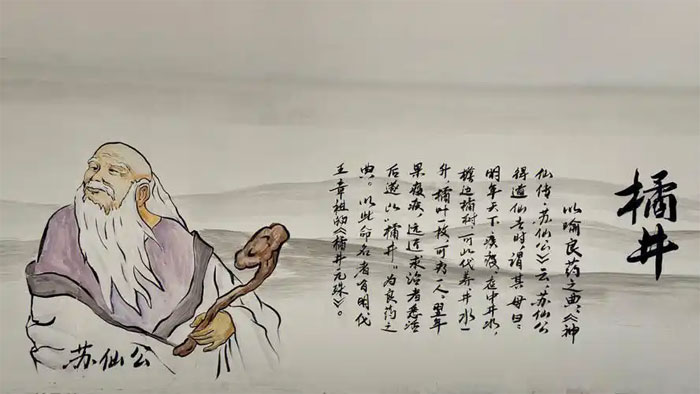 橘井
以喻良药之典：《神
仙传·苏仙公》云：苏仙公
得道仙去时，谓其母曰：
明年天下疾疫，庭中井水，
檐边橘树，可以代养井水一
升橘叶一枚可疗一人。翌年
果疫疾，远近求治者悉治
后遂以“橘井”为良药之
典。以此命名者有明代
王章祖的《橘井元珠》。
苏仙公